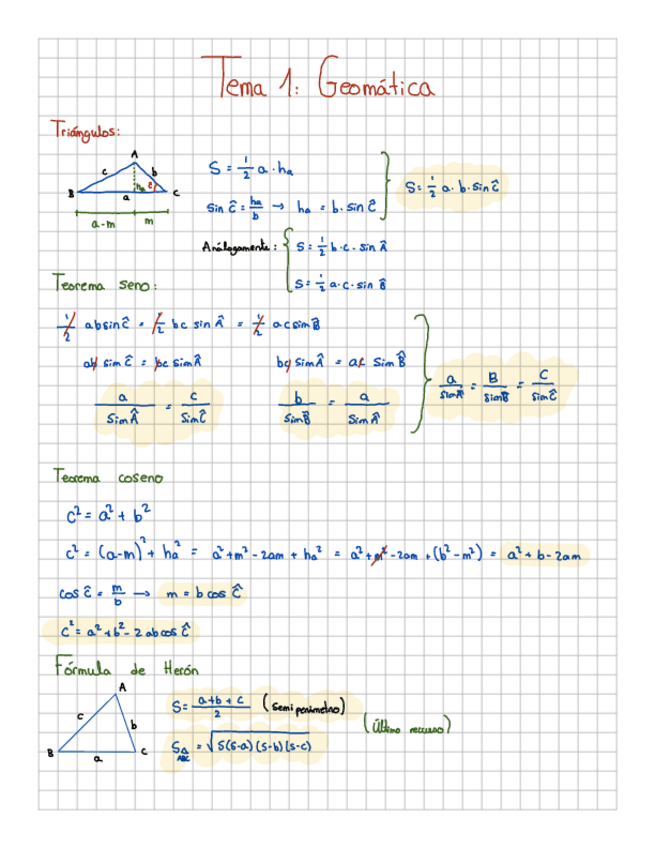 Tema 1: Geomática
Triángulos:
A
c b
ha ĉ
B a C
a-m m
S = 1/2 a · ha
sin ĉ = ha/b → ha = b · sin ĉ
S = 1/2 a · b · sin ĉ
Análogamente: S = 1/2 b · c · sin Â
S = 1/2 a · c · sin B̂
Teorema seno:
1/2 ab sin ĉ = 1/2 bc sin Â = 1/2 ac sin B̂
ab sin ĉ = bc sin Â
bc sin Â = ac sin B̂
a/sin Â = c/sin Ĉ
b/sin B̂ = a/sin Â
a/sin Â = B/sin B̂ = C/sin Ĉ
Teorema coseno
c² = a² + b²
c² = (a-m)² + ha² = a² + m² - 2am + ha² = a² + m² - 2am + (b² - m²) = a² + b - 2am
cos ĉ = m/b → m = b cos Ĉ
c² = a² + b² - 2 ab cos Ĉ
Fórmula de Herón
A
c b
B a C
S = a+b+c/2 (Semiperímetro)
(Último recurso)
S△ABC = √S(S-a)(S-b)(S-c)